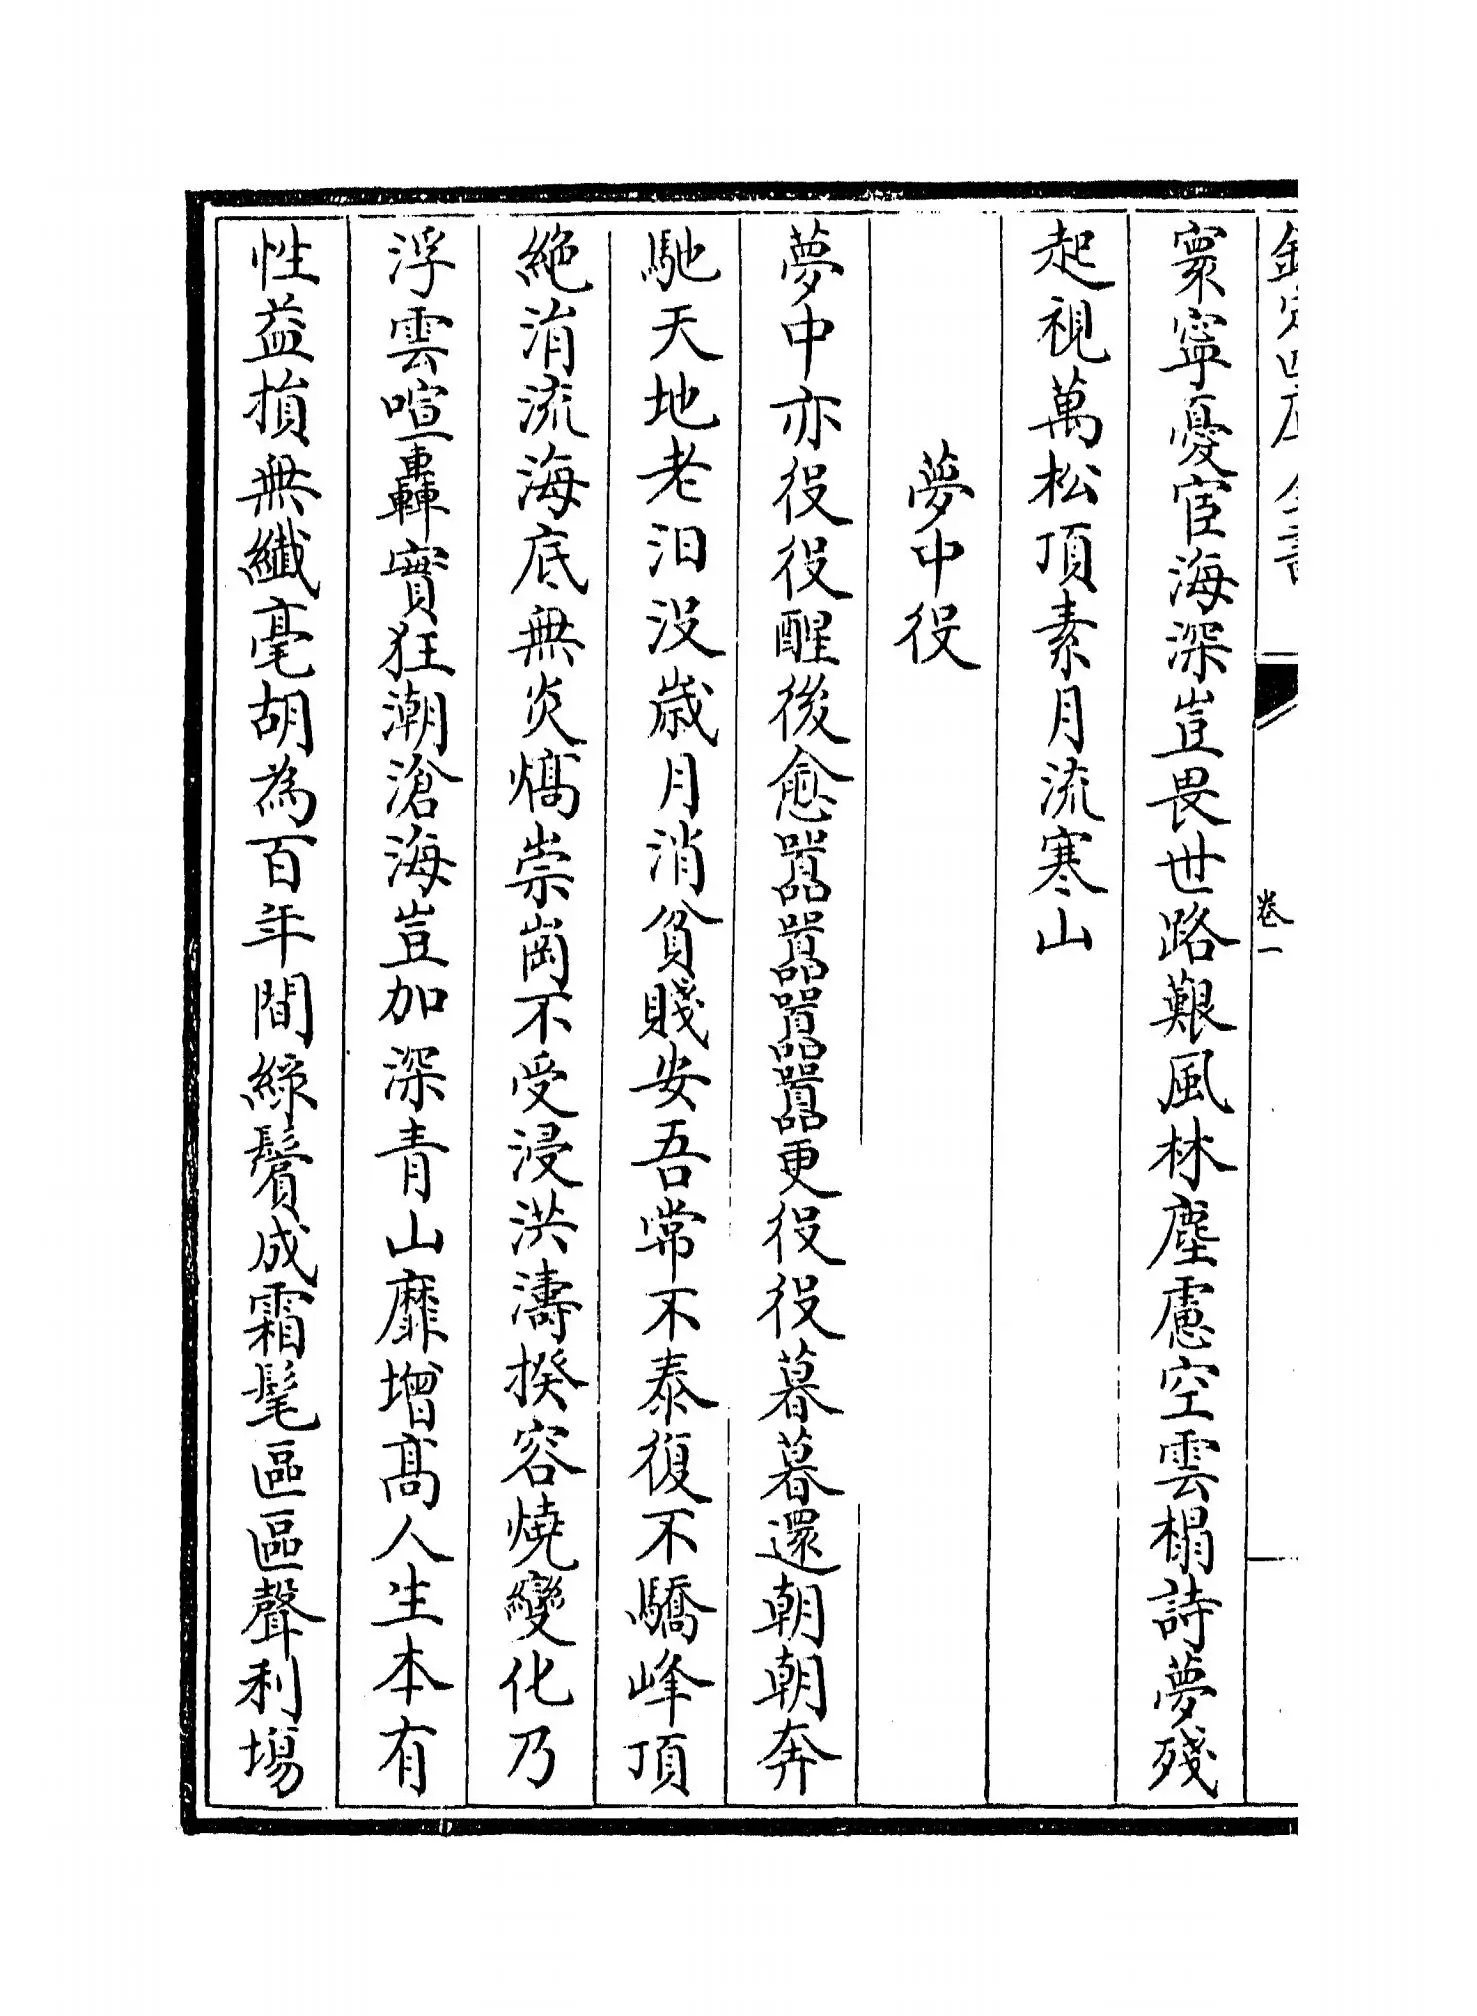 欽定四庫全書
卷一
寡寧憂宦海深豈畏世路艱風林塵慮空雲榻詩夢殘
起視萬松頂素月流寒山
夢中役
夢中亦役役醒後愈囂囂囂囂更役役暮暮還朝朝奔
馳天地老汩没歲月消貧賤安吾常不泰復不驕峰頂
絶涓流海底無炎熇崇崗不受浸洪濤揆容燒變化乃
浮雲喧轟實狂潮滄海豈加深青山靡增髙人生本有
性益損無纎毫胡為百年間緑鬢成霜髦區區聲利場